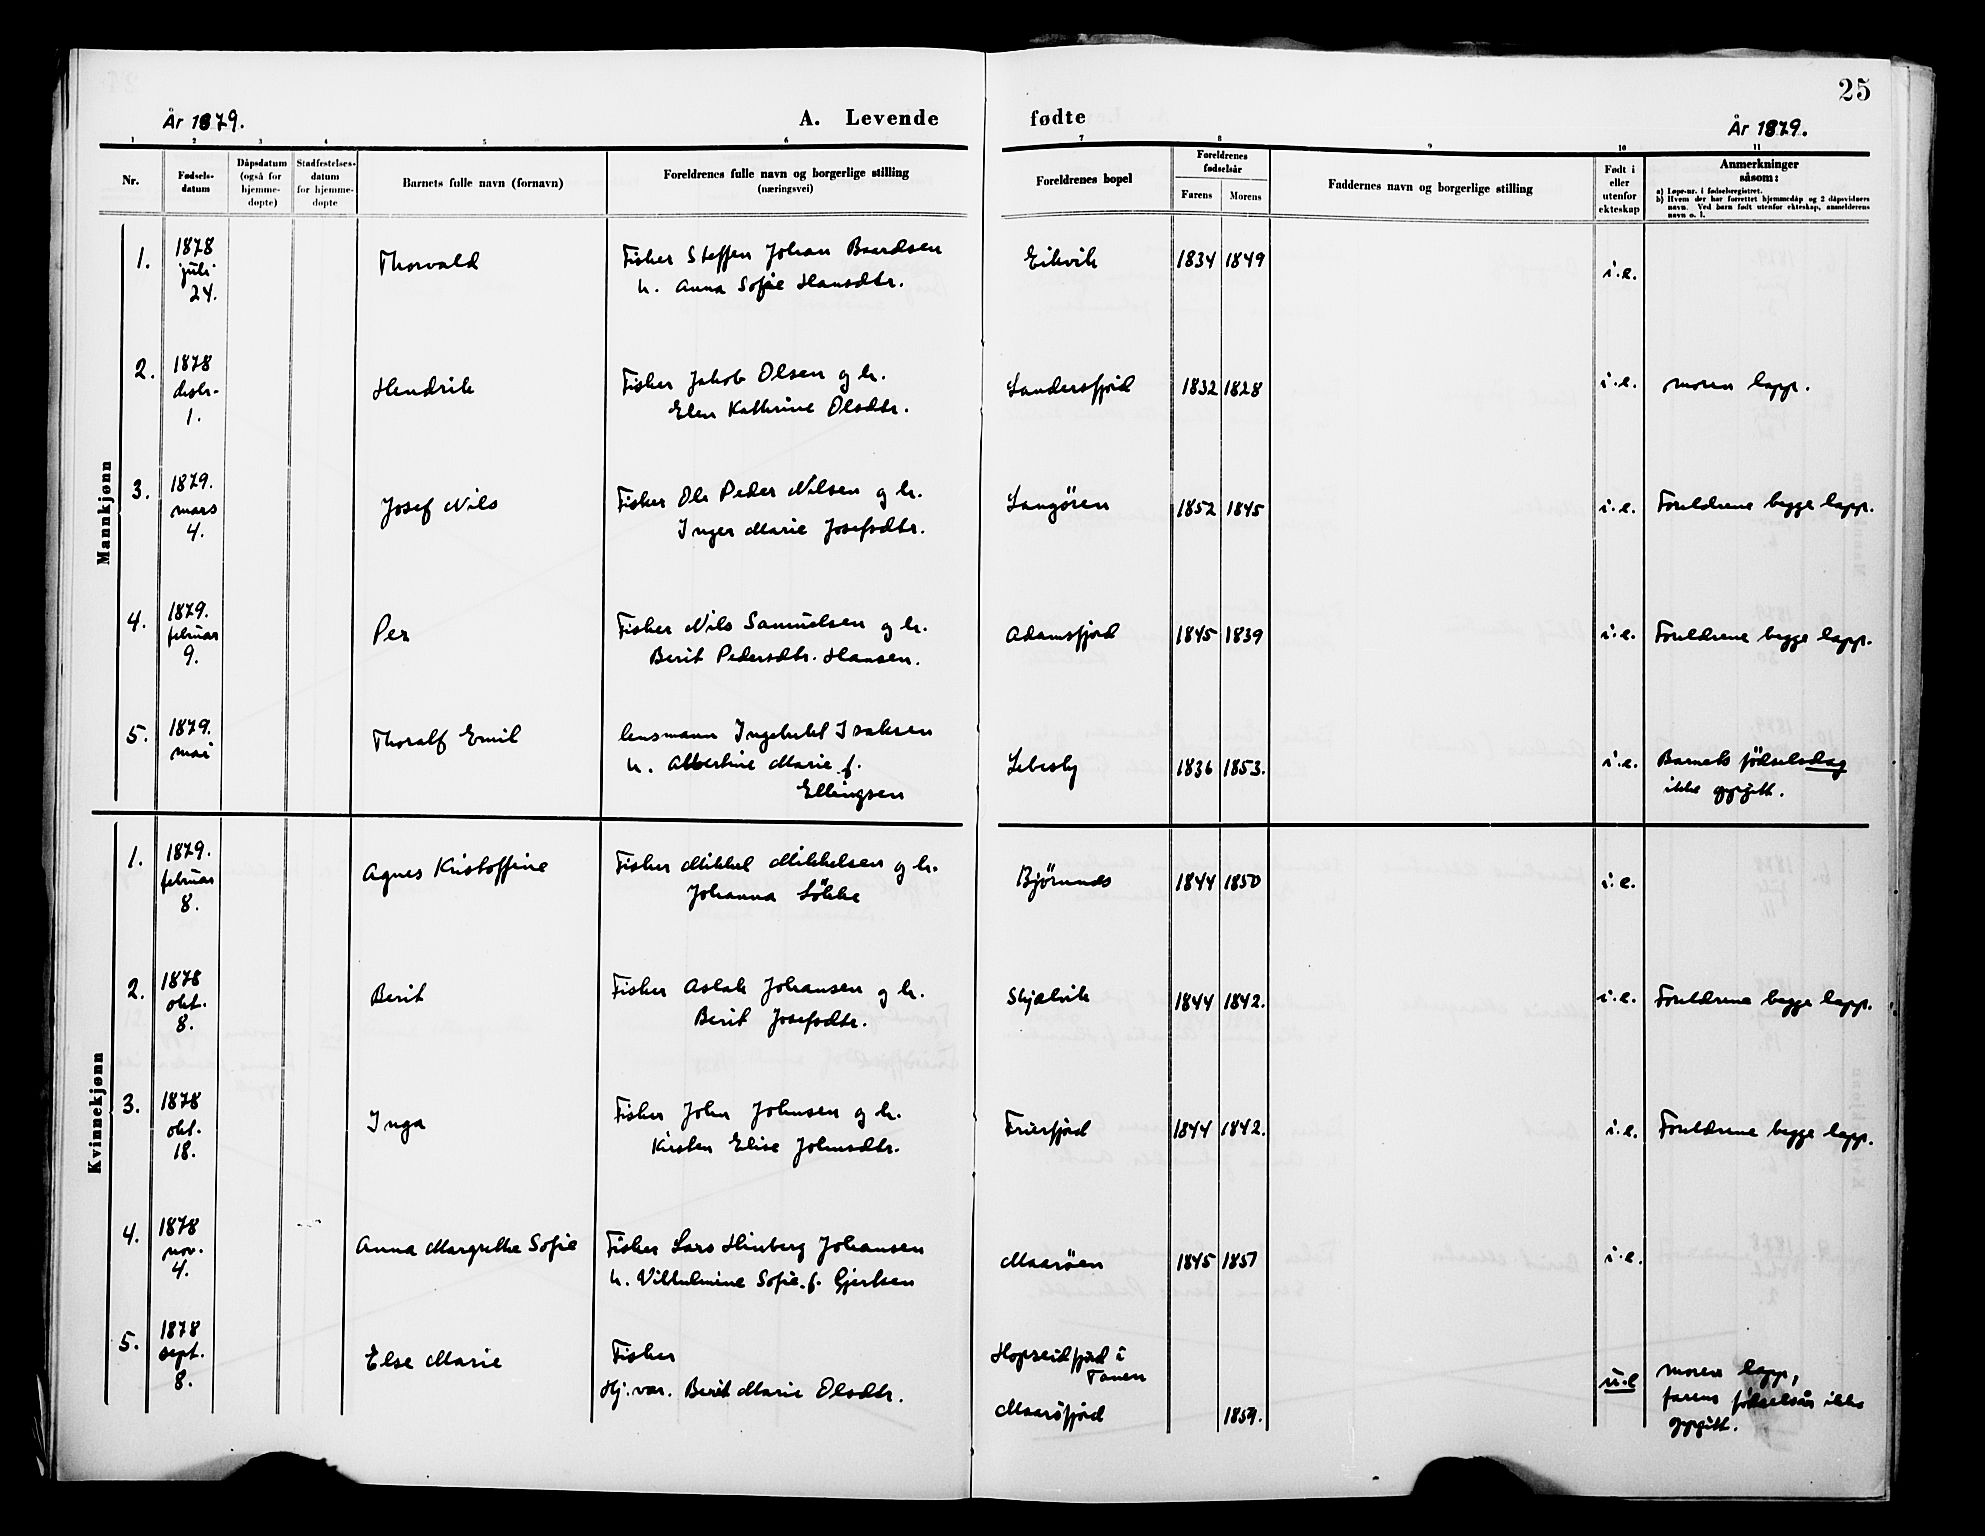 25
År 1879.
A. Levende
fødte
År 1879.
1 2 3 4 5 6 7 8 9 10 11
Nr.
Fødsels-
datum
Dåpsdatum
(også for
hjemme-
døpte)
Stadfestelses-
datum
for hjemme-
døpte
Barnets fulle navn (fornavn)
Foreldrenes fulle navn og borgerlige stilling
(næringsvei)
Foreldrenes bopel
Foreldrenes
fødselsår
Farens
Morens
Faddernes navn og borgerlige stilling
Født i
eller
utenfor
ekteskap
Anmerkninger
såsom:
a) Løpe-nr. i fødselsregistret.
b) Hvem der har forrettet hjemmedåp og 2 dåpsvidners
navn. Ved barn født utenfor ekteskap, anmelderens
navn o. l.
Mannkjønn
1.
1878
juli
24.
Thorvald
Fisker Steffen Johan Baardsen
h. Anna Sofie Hansdtr.
Eikvik
1834 1849
i.e.
2.
1878
desbr.
1.
Hendrik
Fisker Jakob Olsen og h.
Elen Kathrine Olsdtr.
Landersfjord
1832 1828
i.e.
moren lapp.
3.
1879.
mars
4.
Josef Nils
Fisker Ole Peder Nilsen og h.
Inger Marie Josefsdtr.
Langören
1852 1845
i.e.
Foreldrene begge lapp.
4.
1879.
februar
9.
Per
Fisker Nils Samuelsen og h.
Berit Pedersdtr. Hansen.
Adamsfjord
1845 1839
i.e.
Foreldrene begge lapp.
5.
1879.
mai
Thoralf Emil
lensmann Ingebrikt Isaksen
h. Albertine Marie f.
Ellingsen
Lebesby
1836 1853.
i.e.
Barnets födselsdag
ikke oppgitt.
Kvinnekjønn
1.
1879.
februar
8.
Agnes Kristoffine
Fisker Mikkel Mikkelsen og h.
Johanna Lökke
Björnnes
1844 1850
i.e.
2.
1878
okt.
8.
Berit
Fisker Aslak Johansen og h.
Berit Josefsdtr.
Skjælvik
1844 1842.
i.e.
Foreldrene begge lapp.
3.
1878
okt.
18.
Inga
Fisker John Johnsen og h.
Kirsten Elise Johnsdtr.
Friersfjord
1844 1842.
i.e.
Foreldrene begge lapp.
4.
1878
nov.
4.
Anna Margrethe Sofie
Fisker Lars Hinberg Johansen
h. Vilhelmine Sofie f. Gjertsen
Maaröen
1845 1857
i.e.
5.
1878
sept.
8.
Else Marie
Fisker
Hj. var. Berit Marie Olsdtr.
Hopseidfjord i
Tanen
Maaröfjord
1859.
u.e
moren lapp,
farens födselsår ikke
oppgitt.